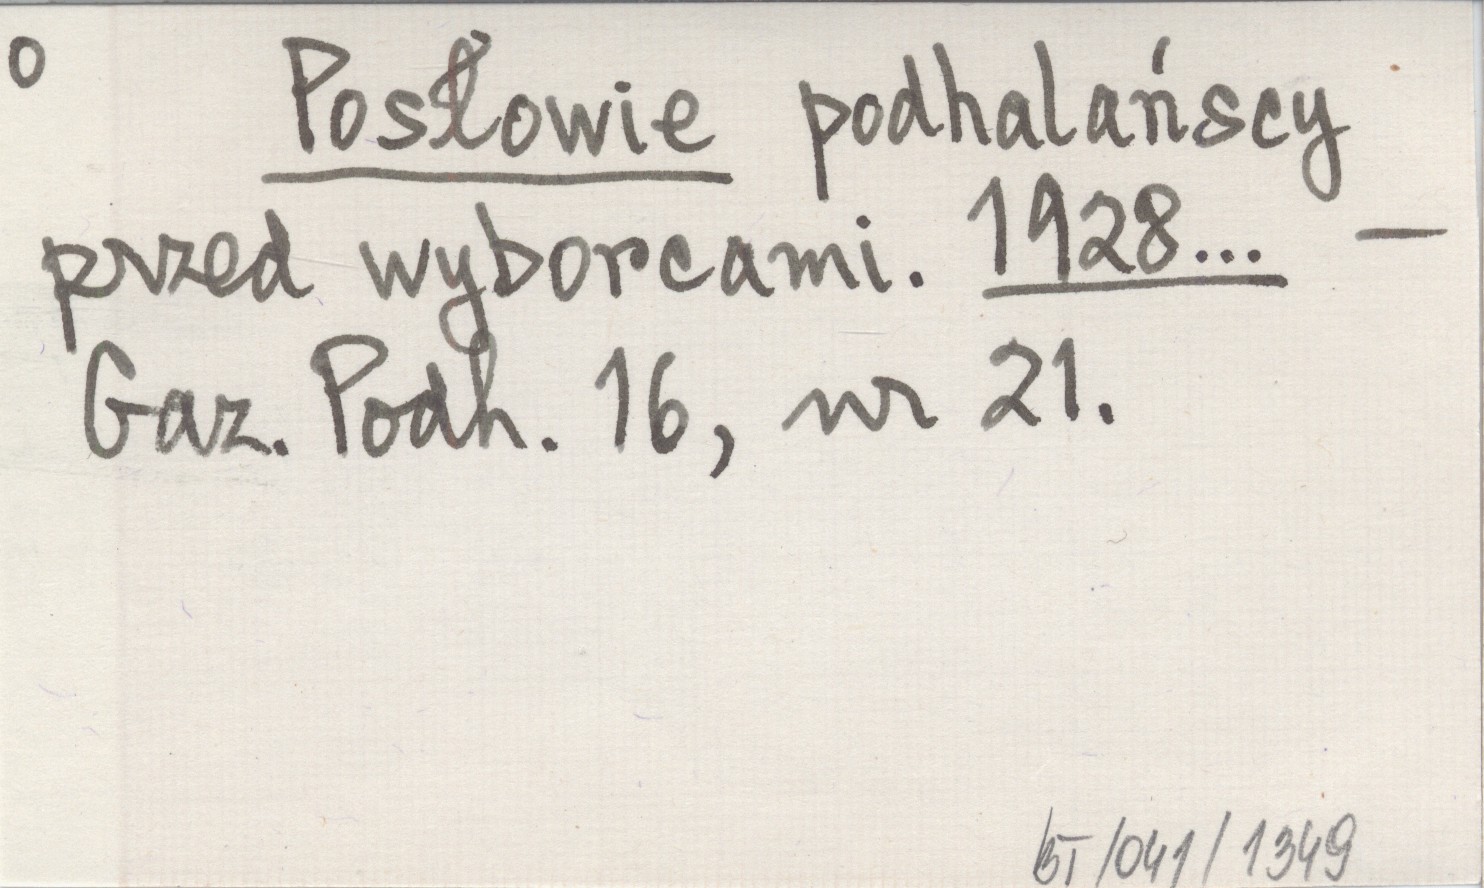 o Posłowie podhalańscy
przed wyborcami. 1928... —
Gaz. Podh. 16, nr 21.
BT/041/1349